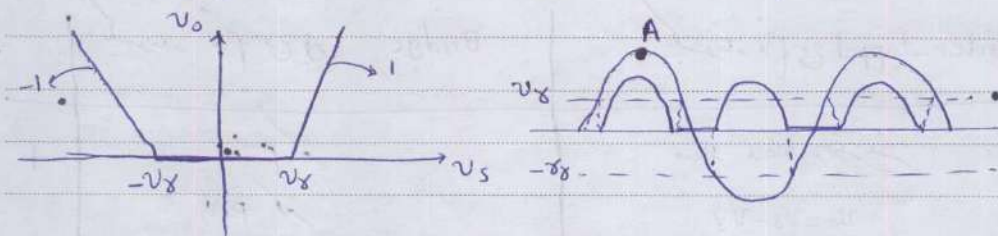 v₀
-1
1
-vγ
vγ
vₛ
A
vγ
-vγ